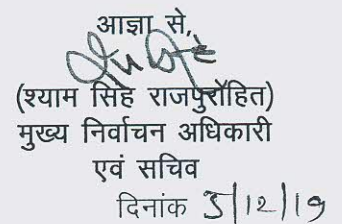 आज्ञा से,
(श्याम सिंह राजपुरोहित)
मुख्य निर्वाचन अधिकारी
एवं सचिव
दिनांक 5/12/19